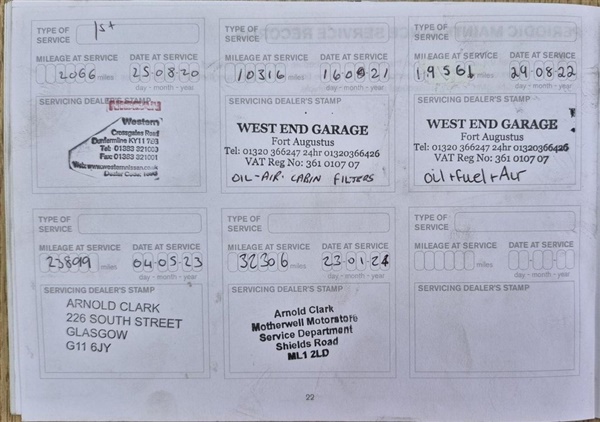 TYPE OF SERVICE 1st
MILEAGE AT SERVICE DATE AT SERVICE
2066 miles 25 08 20
day - month - year
SERVICING DEALER'S STAMP
Western
Crossgates Road
Dunfermline KY11 7EG
Tel: 01383 321003
Fax: 01383 221001
TYPE OF SERVICE
MILEAGE AT SERVICE DATE AT SERVICE
10316 miles 16 09 21
day - month - year
SERVICING DEALER'S STAMP
WEST END GARAGE
Fort Augustus
Tel: 01320 366247 24hr 01320366426
VAT Reg No: 361 0107 07
OIL - AIR. CABIN FILTERS
TYPE OF SERVICE
MILEAGE AT SERVICE DATE AT SERVICE
19561 miles 29 08 22
day - month - year
SERVICING DEALER'S STAMP
WEST END GARAGE
Fort Augustus
Tel: 01320 366247 24hr 01320366426
VAT Reg No: 361 0107 07
oil + fuel + Air
TYPE OF SERVICE
MILEAGE AT SERVICE DATE AT SERVICE
23899 miles 04-05-23
day - month - year
SERVICING DEALER'S STAMP
ARNOLD CLARK
226 SOUTH STREET
GLASGOW
G11 6JY
TYPE OF SERVICE
MILEAGE AT SERVICE DATE AT SERVICE
32306 miles 23-01-24
day - month - year
SERVICING DEALER'S STAMP
Arnold Clark
Motherwell Motorstore
Service Department
Shields Road
ML1 2LD
TYPE OF SERVICE
MILEAGE AT SERVICE DATE AT SERVICE
miles
day - month - year
SERVICING DEALER'S STAMP
22